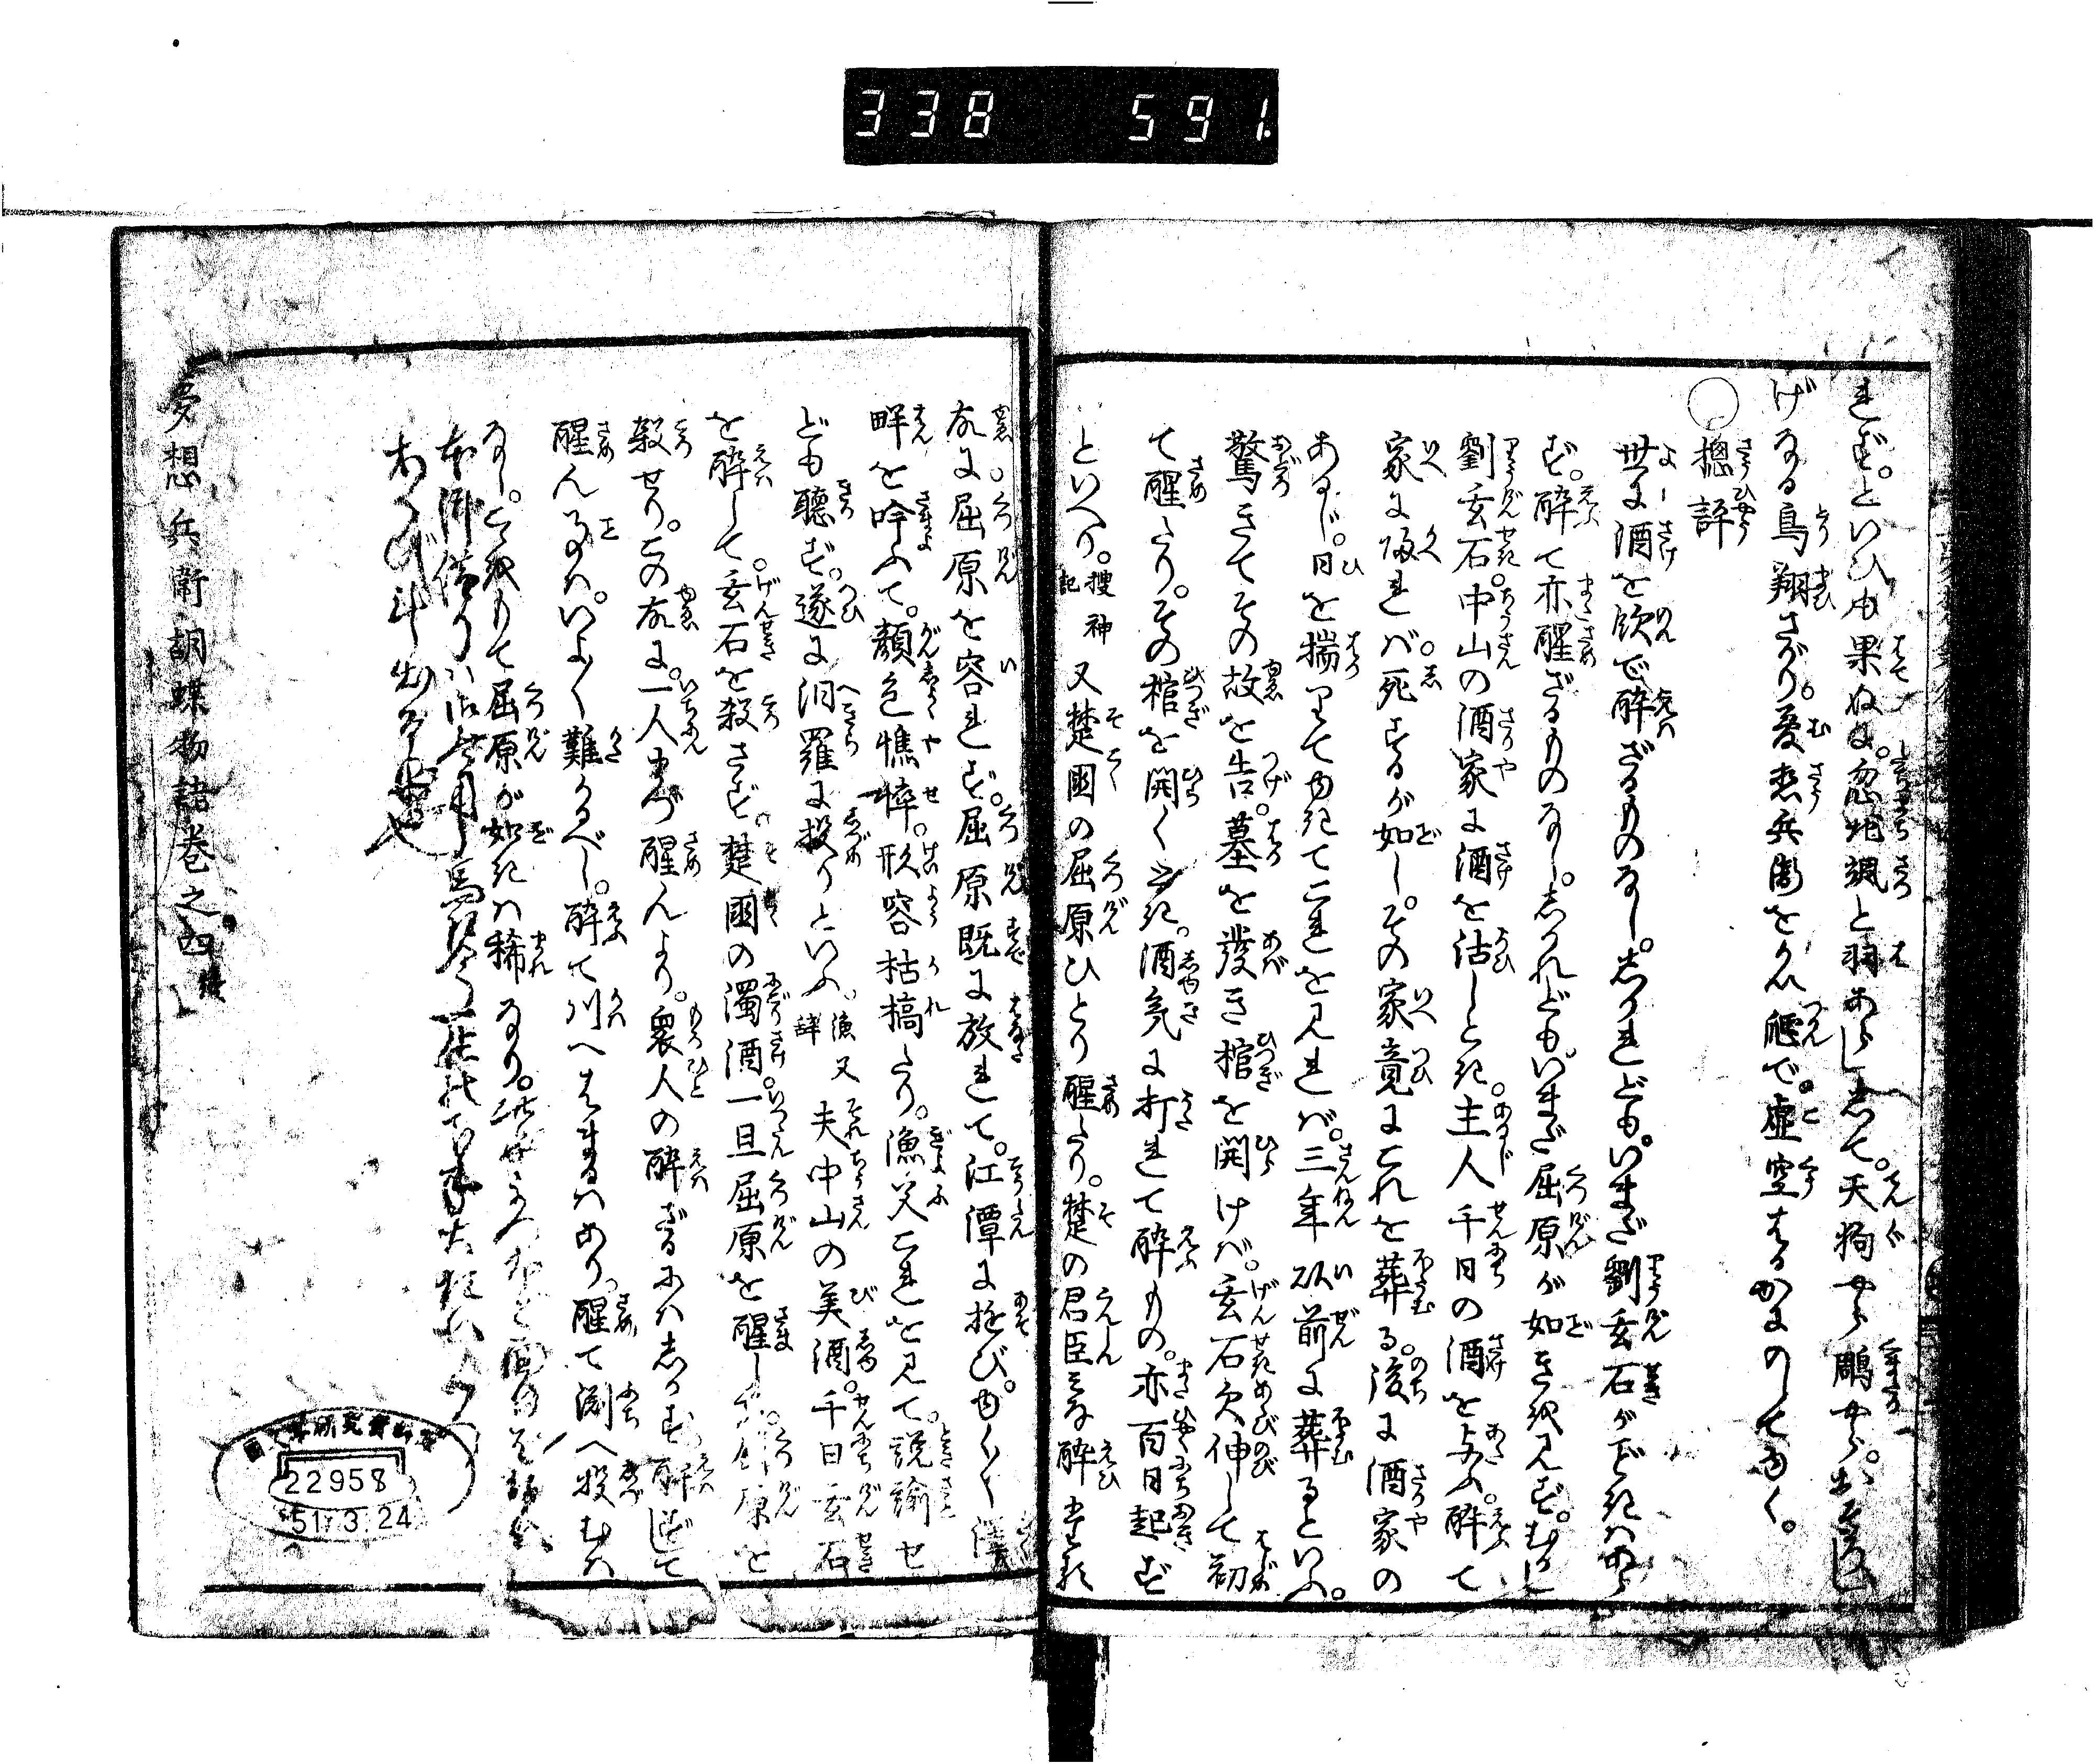 338 591
れず。といひも果ぬに。忽地颯と羽あらしして。天狗やら鵰やら。
げなる鳥翔さがり。夢想兵衛をかい爬で。虚空はるかにのしてゆく。
總評
世に酒を飲で酔ざるものなし。しかれども。いまだ劉玄石がごときはあら
ず。酔て亦醒ざるものなし。しかれども。いまだ屈原が如きを見ず。むかし
劉玄石。中山の酒家に酒を沽しとき。主人千日の酒を与ふ。酔て
家に帰れば。死するが如し。その家竟にこれを葬る。後に酒家の
あるじ。日を揣りてゆきてこれを見れば。三年以前に葬るといふ。
驚きてその故を告。墓を發き棺を開けば。玄石欠伸して初
て醒たり。その棺を開くとき。酒気に打れて酔もの。亦百日起ず
といへり。搜神記 又楚國の屈原ひとり醒たり。楚の君臣みな酔
故に屈原を容れず。屈原既に放れて。江潭に遊び。ゆく〳〵澤
畔を吟ふて。顏色憔悴。形容枯槁たり。漁父これを見て。説諭せ
ども聽ず。遂に汨羅に投りといふ。漁辞 又夫中山の美酒。千日玄石
を酔して。玄石を殺さず。楚國の濁酒。一旦屈原を醒して。屈原を
殺せり。この故に。一人まづ醒んより。衆人の酔ざるにはしかず。酔ずして
醒んものは。いよ〳〵難かるべし。酔て川へはまるはあり。醒て淵へ投むは
なし。こゝをもて屈原が如きは稀なり。
夢想兵衛胡蝶物語巻之四
22958
51.3.24